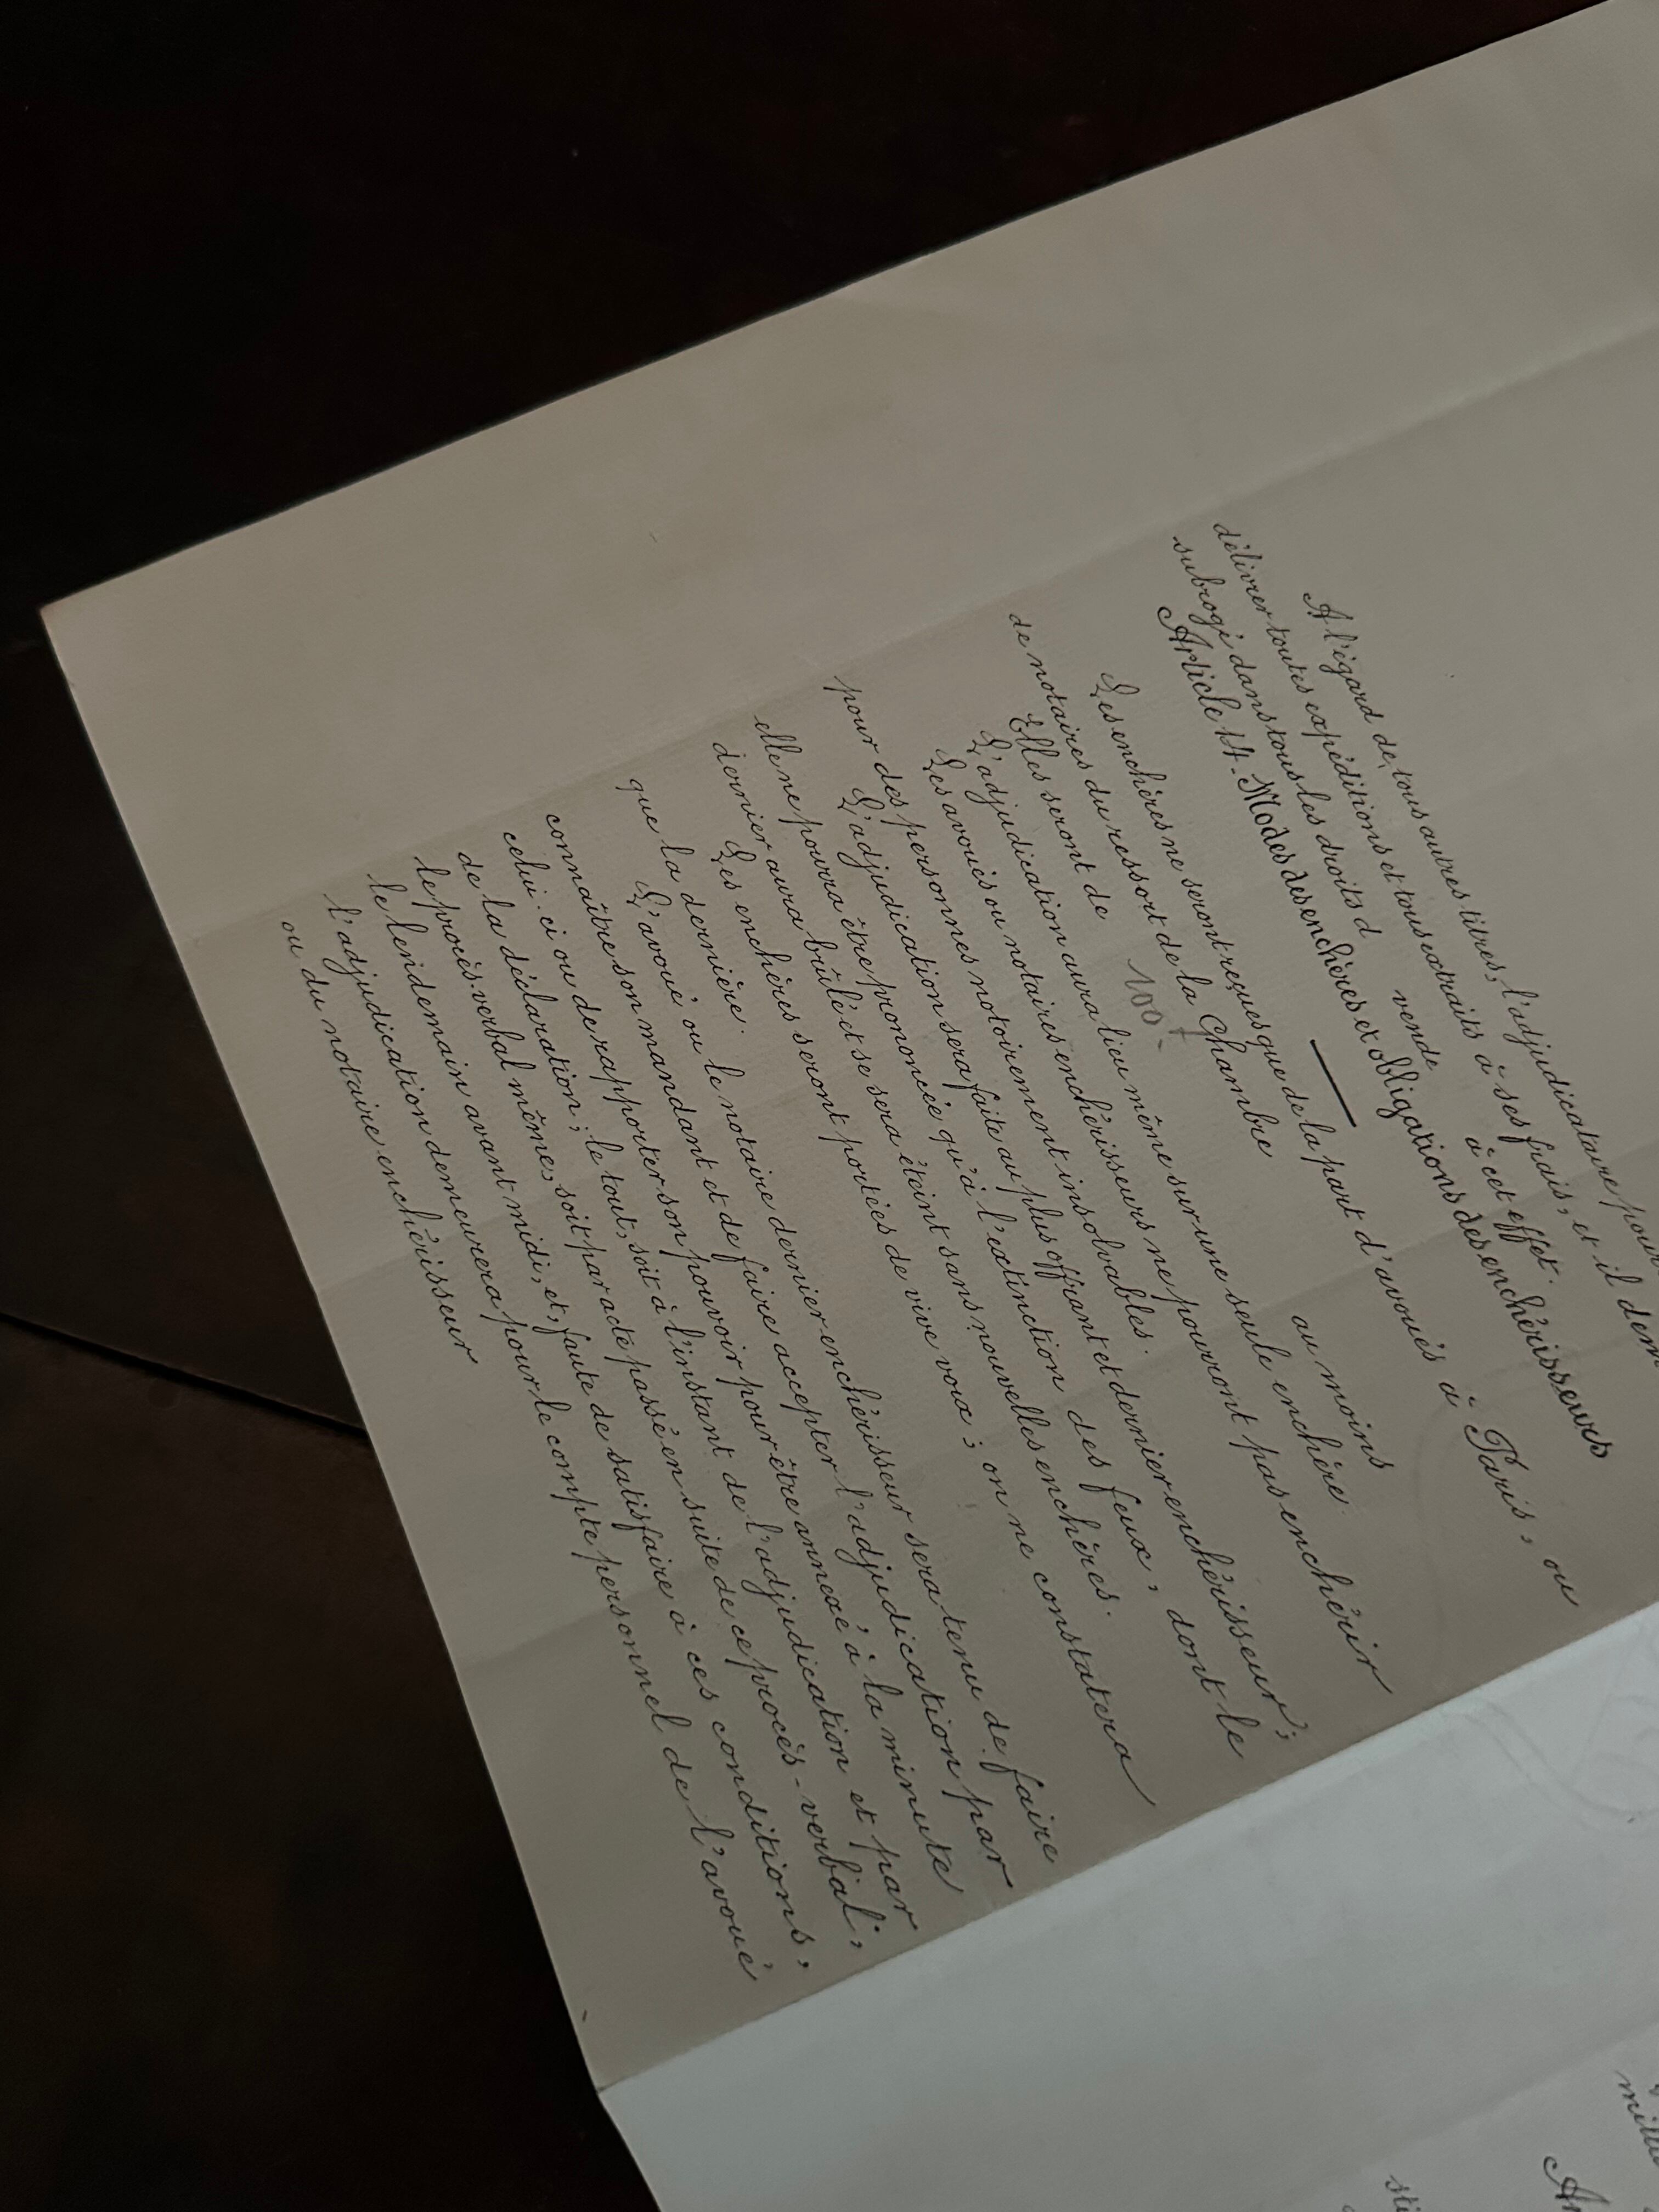 A l'égard de tous autres titres, l'adjudicataire
délivrer toutes expéditions et tous extraits à ses frais, et il
subrogé dans tous les droits d vende à cet effet.
Article 14. Modes des enchères et obligations des enchérisseurs
Les enchères ne seront reçues que de la part d'avoués à Paris, ou
de notaires du ressort de la Chambre
Elles seront de 100 au moins
L'adjudication aura lieu même sur une seule enchère.
Les avoués ou notaires enchérisseurs ne pourront pas enchérir
pour des personnes notoirement insolvables.
L'adjudication sera faite au plus offrant et dernier enchérisseur;
elle ne pourra être prononcée qu'à l'extinction des feux, dont le
dernier aura brûlé et se sera éteint sans nouvelles enchères.
Les enchères seront portées de vive voix; on ne constatera
que la dernière.
L'avoué ou le notaire dernier enchérisseur sera tenu de faire
connaître son mandant et de faire accepter l'adjudication par
celui-ci ou de rapporter son pouvoir pour être annexé à la minute
de la déclaration; le tout, soit à l'instant de l'adjudication et par
le procès-verbal même, soit par acte passé en suite de ce procès-verbal,
le lendemain avant midi, et, faute de satisfaire à ces conditions,
l'adjudication demeurera pour le compte personnel de l'avoué
ou du notaire enchérisseur